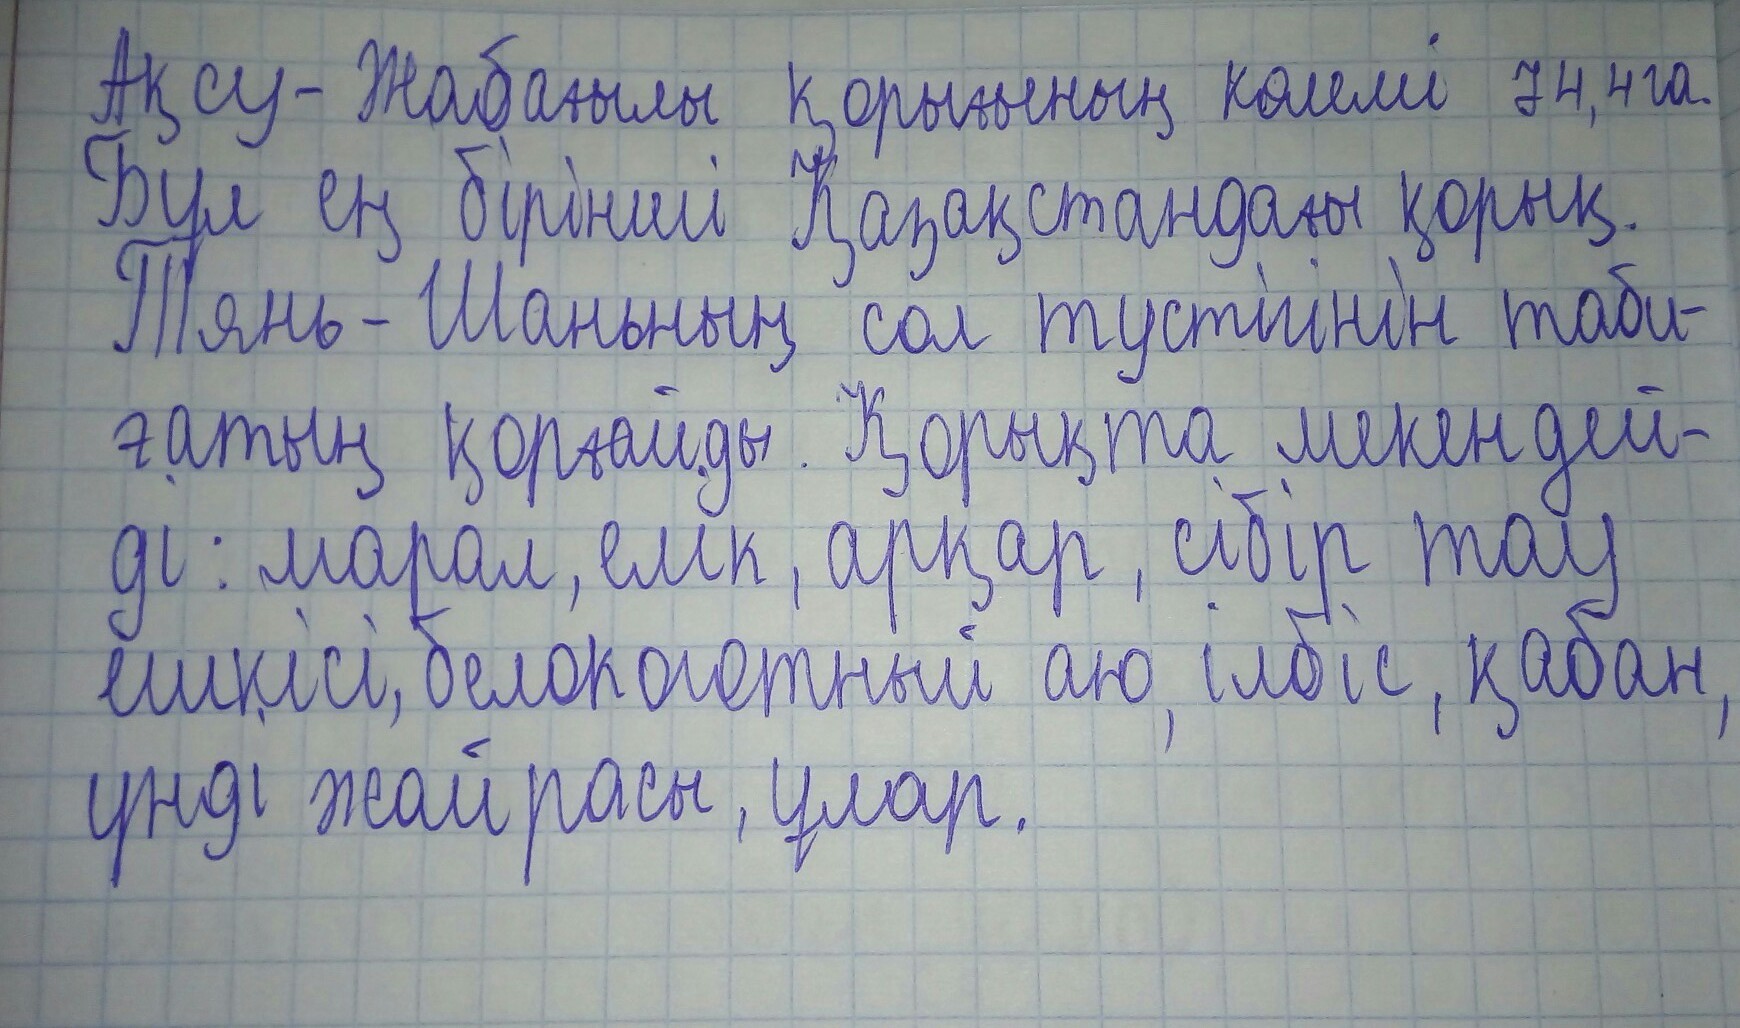 Ақсу-Жабағылы қорығының көлемі 74,4га.
Бұл ең бірінші Қазақстандағы қорық.
Тянь-Шаньның сол түстігінін таби-
ғатың қорғайды. Қорықта мекендей-
ді: марал, елік, арқар, сібір тау
ешкісі, белокоготный аю, ілбіс, қабан,
үнді жайрасы, ұлар.